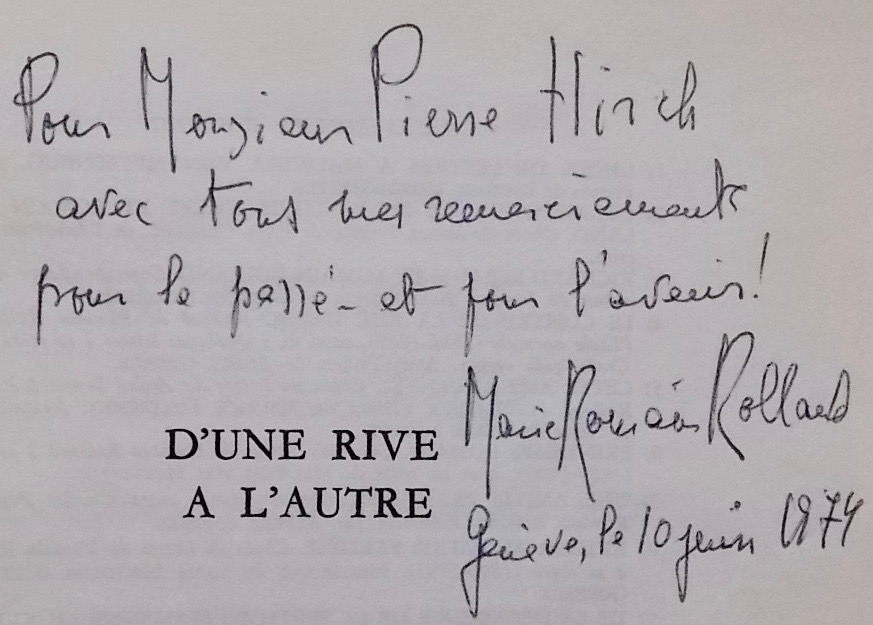 Pour Monsieur Pierre Hirsch
avec tous mes remerciements
pour le passé - et pour l'avenir!
Marie Romain Rolland
D'UNE RIVE
A L'AUTRE
Genève, le 10 juin 1974